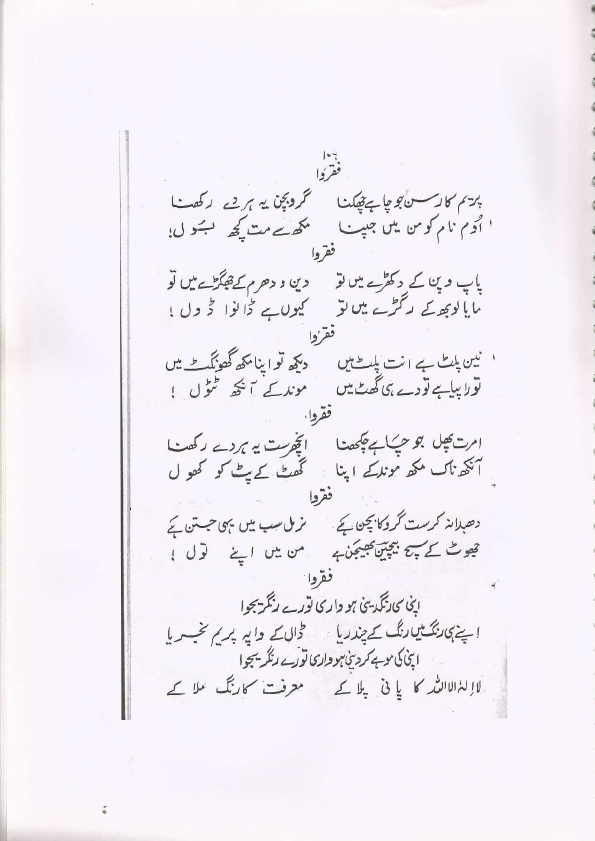 ۱۰۶
فقروا
پریم کا رسن جو چاہے چھکنا گرو بچن یہ ہردے رکھنا
اُوم نام کو من میں جپنا مکھ سے مت کچھ بَول!
فقروا
پاپ و پن کے دکھڑے میں تو دین و دھرم کے جھگڑے میں تو
مایا لوبھ کے رگڑے میں تو کیوں ہے ڈانوا ڈول!
فقروا
نین پلٹ ہے انت پلٹ میں دیکھ تو اپنا مکھ گھونگٹ میں
تورا پیا ہے تو دے ہی گھٹ میں موند کے آنکھ ٹٹول!
فقروا
امرت پھل جو چاہے چکھنا انچھر ست یہ ہردے رکھنا
آنکھ ناک مکھ موند کے اپنا گھٹ کے پٹ کو کھول
فقروا
کر ست گرو کا بچن ہے نرمل سب میں یہی جتن ہے
جھوٹ کے سچ من میں اپنے تول!
فقروا
اپنی سی رنگ دینی ہو واری تورے رنگریجوا
اپنے ہی رنگ میں رنگ کے چندریا ڈال کے واپہ پریم نجریا
اپنی کی موہے کر دینی ہو واری تورے رنگریجوا
لا إلٰہ الا اللہ کا پانی پلا کے معرفت کا رنگ ملا کے